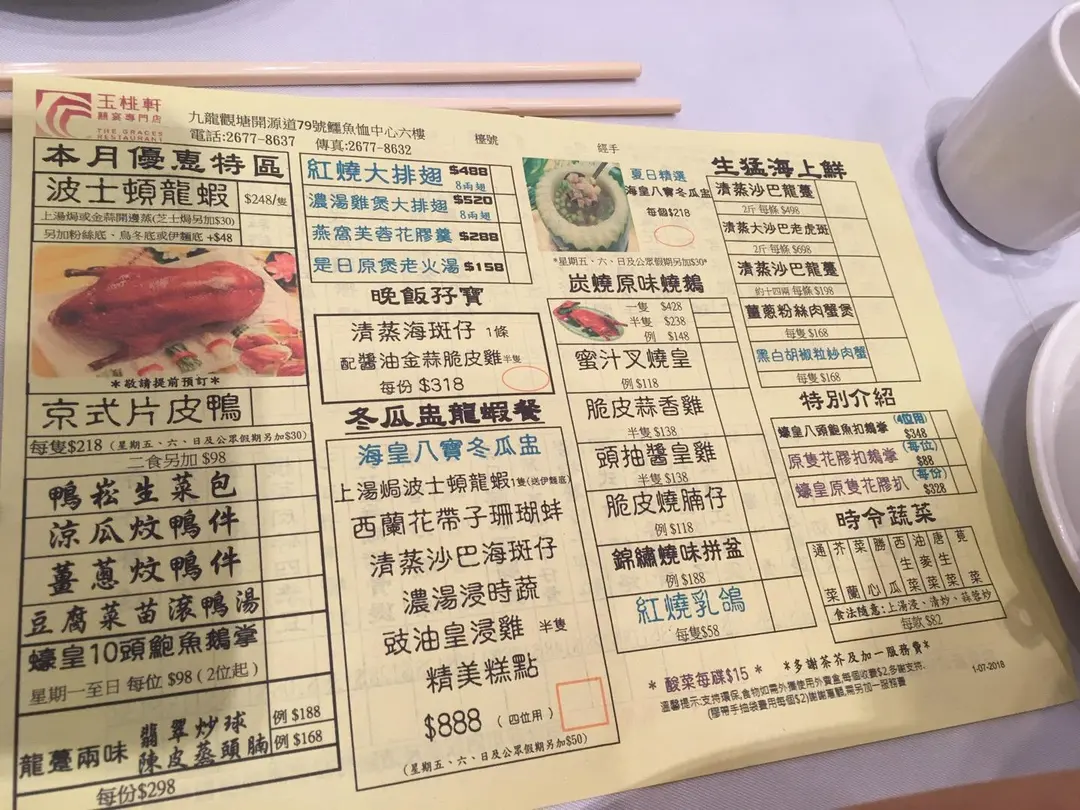 玉桃軒
囍宴專門店
THE GRACES
RESTAURANT
九龍觀塘開源道79號鱷魚恤中心六樓
電話:2677-8637 傳真:2677-8632
檯號
經手
本月優惠特區
波士頓龍蝦 $248/隻
上湯焗或金蒜開邊蒸(芝士焗另加$30)
另加粉絲底、烏冬底或伊麵底 +$48
*敬請提前預訂*
京式片皮鴨
每隻$218 (星期五、六、日及公眾假期另加$30)
二食另加 $98
鴨崧生菜包
涼瓜炆鴨件
薑蔥炆鴨件
豆腐菜苗滾鴨湯
蠔皇10頭鮑魚鵝掌
星期一至日 每位 $98 (2位起)
龍躉兩味
翡翠炒球 例 $188
陳皮蒸頭腩 例 $168
每份$298
紅燒大排翅 $488
8兩翅
濃湯雞煲大排翅 $520
8兩翅
燕窩芙蓉花膠羹 $288
是日原煲老火湯 $158
晚飯孖寶
清蒸海斑仔 1條
配醬油金蒜脆皮雞半隻
每份 $318
冬瓜盅龍蝦餐
海皇八寶冬瓜盅
上湯焗波士頓龍蝦1隻(送伊麵底)
西蘭花帶子珊瑚蚌
清蒸沙巴海斑仔
濃湯浸時蔬
豉油皇浸雞 半隻
精美糕點
$888 (四位用)
(星期五、六、日及公眾假期另加$50)
夏日精選
海皇八寶冬瓜盅
每個$218
*星期五、六、日及公眾假期另加$30*
炭燒原味燒鵝
一隻 $428
半隻 $238
例 $148
蜜汁叉燒皇
例 $118
脆皮蒜香雞
半隻 $138
頭抽醬皇雞
半隻 $138
脆皮燒腩仔
例 $118
錦繡燒味拼盆
例 $188
紅燒乳鴿
每隻$58
生猛海上鮮
清蒸沙巴龍躉
2斤 每條 $498
清蒸大沙巴老虎斑
2斤 每條 $698
清蒸沙巴龍躉
約十四兩 每條 $198
薑蔥粉絲肉蟹煲
每隻 $168
黑白胡椒粒炒肉蟹
每隻 $168
特別介紹
蠔皇八頭鮑魚扣鵝掌 (4位用) $348
原隻花膠扣鵝掌 (每位) $88
蠔皇原隻花膠扒 (每份) $328
時令蔬菜
通菜
芥蘭
菜心
勝瓜
西生菜
油麥菜
唐生菜
莧菜
食法隨意:上湯浸、清炒、蒜蓉炒
每款 $82
* 酸菜每碟$15 *
*多謝茶芥及加一服務費*
溫馨提示:支持環保,食物如需外攜使用外賣盒,每個收費$2,多謝支持.
(膠帶手抽袋費用每個$2)謝謝惠顧,需另加一服務費
1-07-2018